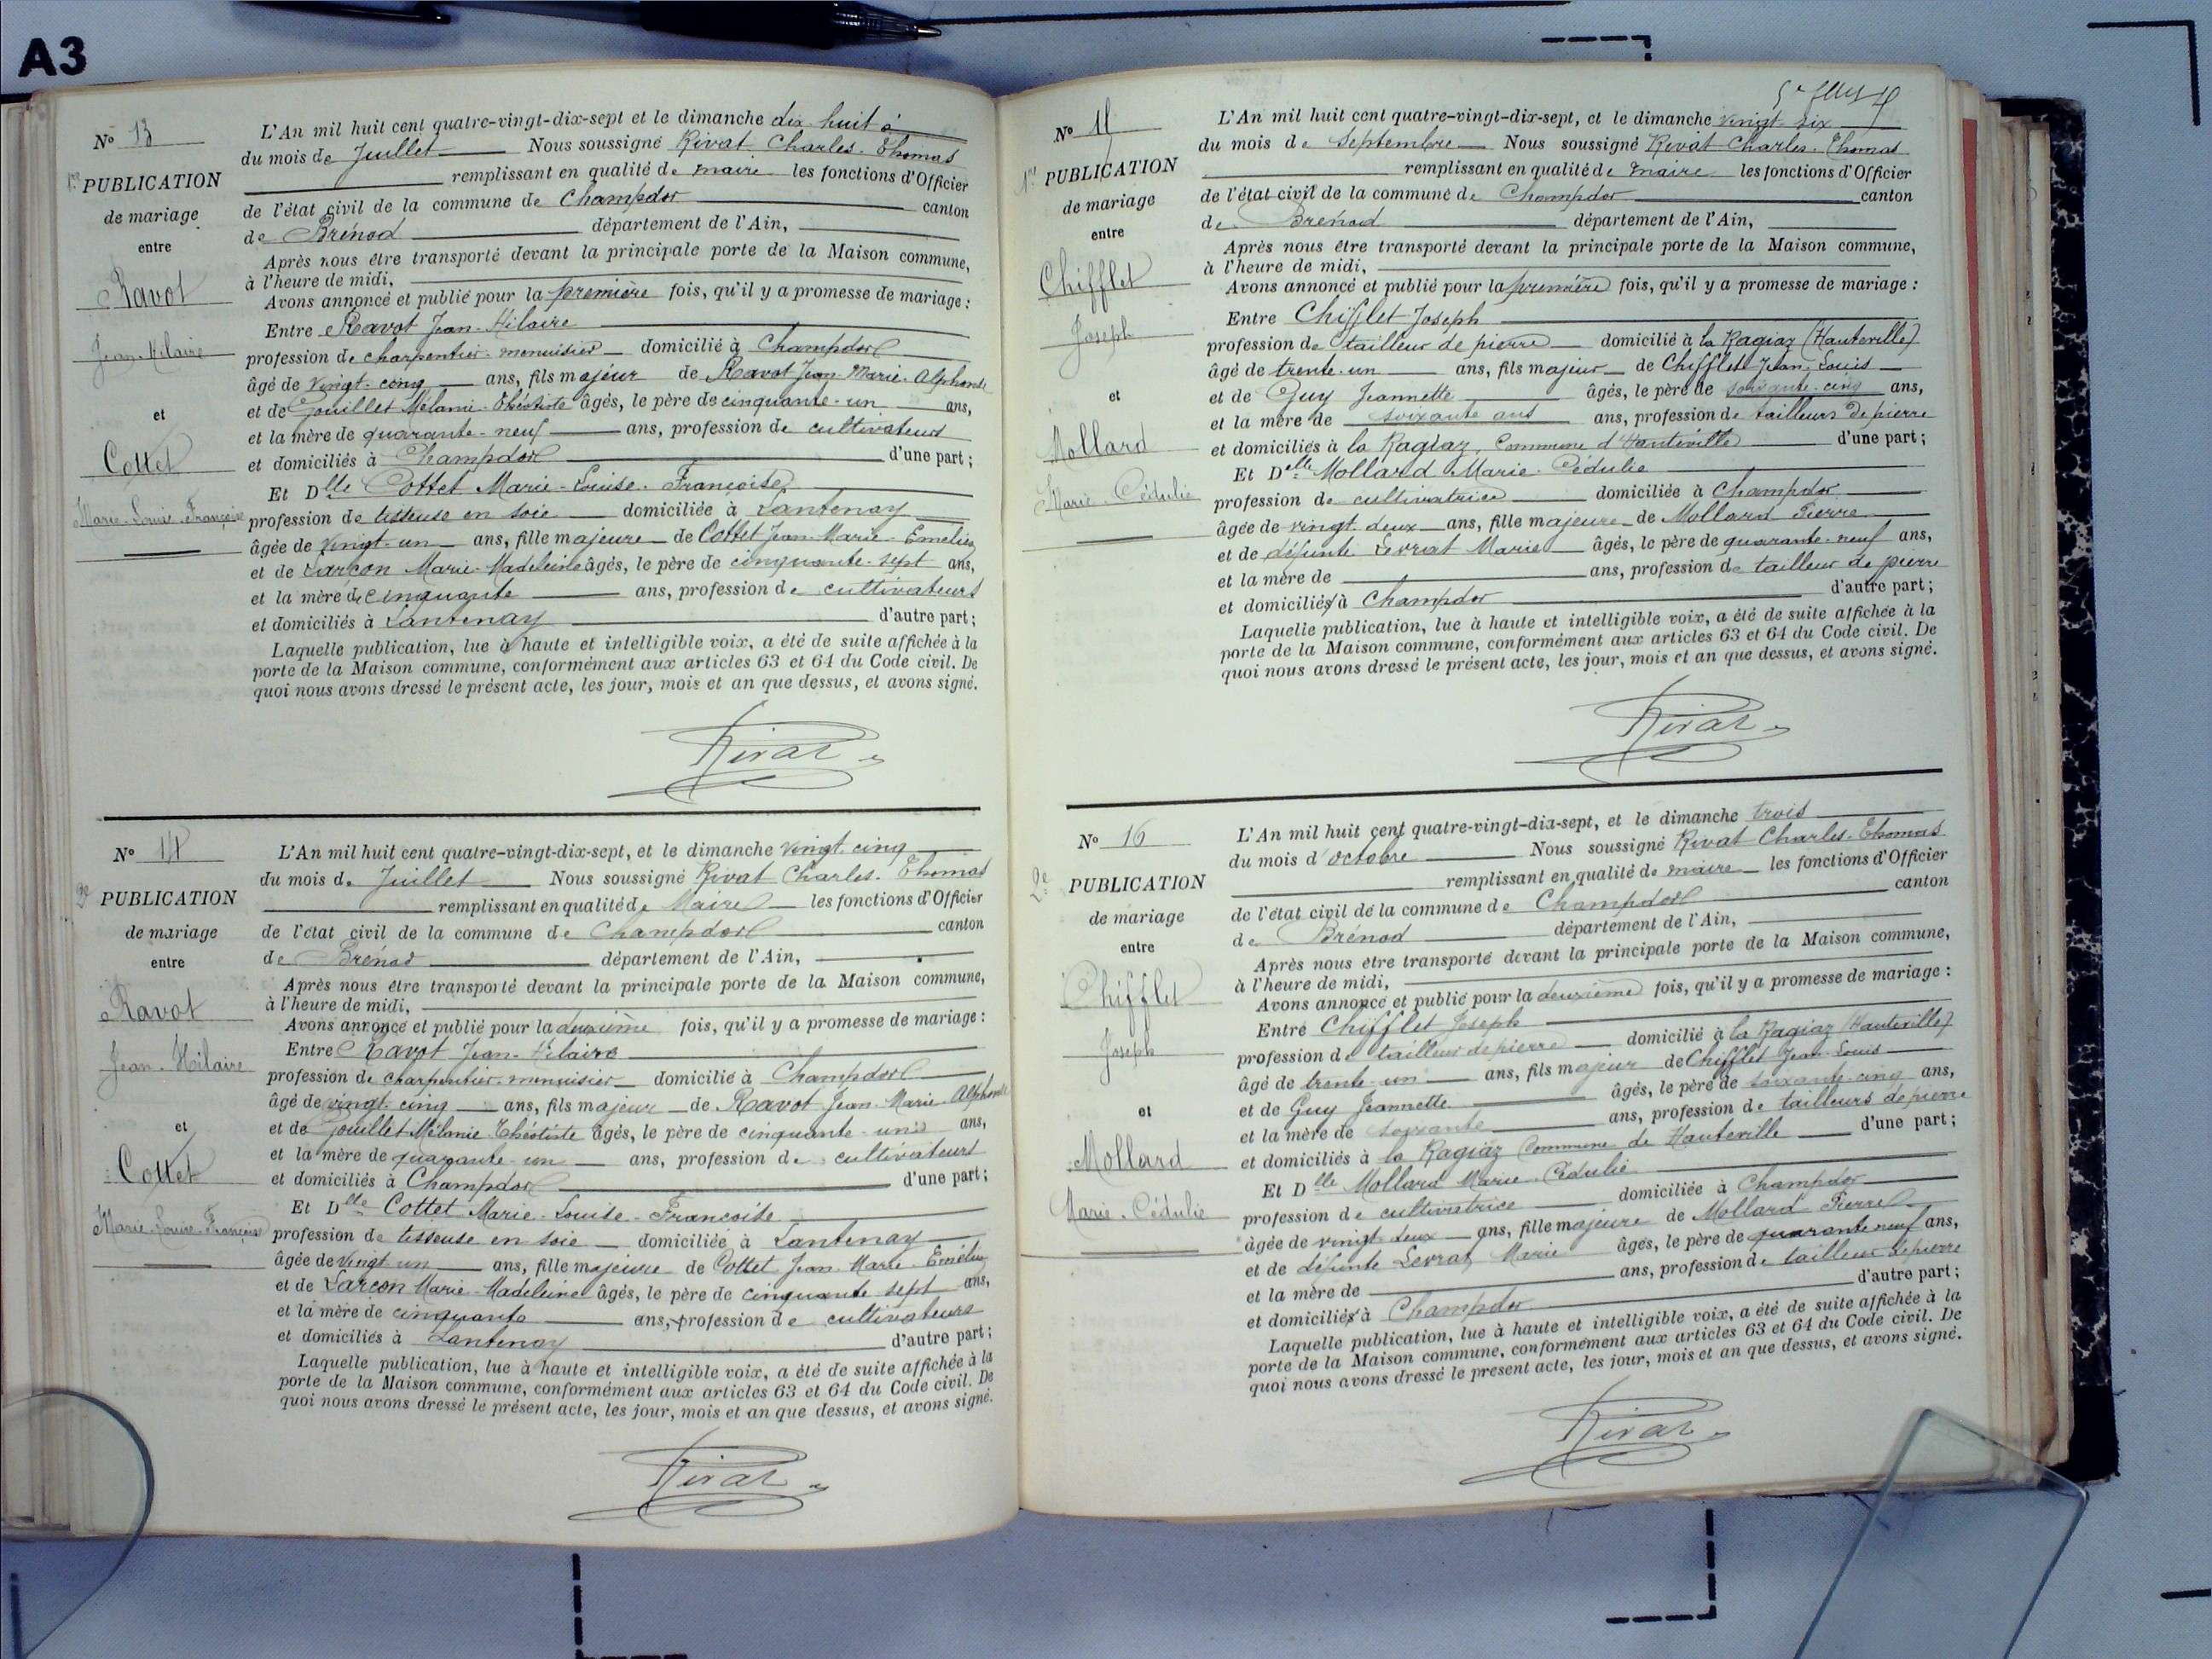 A3
N° 13
1re PUBLICATION
de mariage
entre
Ravot
Jean-Hilaire
et
Cottet
Marie-Louise-Françoise
L'An mil huit cent quatre-vingt-dix-sept et le dimanche dix huit
du mois de Juillet Nous soussigné Rivat Charles-Thomas
remplissant en qualité de maire les fonctions d'Officier
de l'état civil de la commune de Champdor canton
de Brénod département de l'Ain,
Après nous être transporté devant la principale porte de la Maison commune,
à l'heure de midi,
Avons annoncé et publié pour la première fois, qu'il y a promesse de mariage :
Entre Ravot Jean-Hilaire
profession de charpentier-menuisier domicilié à Champdor
âgé de vingt-cinq ans, fils majeur de Ravot Jean-Marie-Alphonse
et de Gouillet Mélanie-Théotiste âgés, le père de cinquante-un ans,
et la mère de quarante-neuf ans, profession de cultivateurs
et domiciliés à Champdor d'une part ;
Et Dlle Cottet Marie-Louise-Françoise
profession de tisseuse en soie domiciliée à Lantenay
âgée de vingt-un ans, fille majeure de Cottet Jean-Marie-Emélien
et de Larçon Marie-Madeleine âgés, le père de cinquante-sept ans,
et la mère de cinquante ans, profession de cultivateurs
et domiciliés à Lantenay d'autre part ;
Laquelle publication, lue à haute et intelligible voix, a été de suite affichée à la
porte de la Maison commune, conformément aux articles 63 et 64 du Code civil. De
quoi nous avons dressé le présent acte, les jour, mois et an que dessus, et avons signé.
Rivat
N° 14
2e PUBLICATION
de mariage
entre
Ravot
Jean-Hilaire
et
Cottet
Marie-Louise-Françoise
L'An mil huit cent quatre-vingt-dix-sept, et le dimanche vingt-cinq
du mois de Juillet Nous soussigné Rivat Charles-Thomas
remplissant en qualité de Maire les fonctions d'Officier
de l'état civil de la commune de Champdor canton
de Brénod département de l'Ain,
Après nous être transporté devant la principale porte de la Maison commune,
à l'heure de midi,
Avons annoncé et publié pour la deuxième fois, qu'il y a promesse de mariage :
Entre Ravot Jean-Hilaire
profession de charpentier-menuisier domicilié à Champdor
âgé de vingt-cinq ans, fils majeur de Ravot Jean-Marie-Alphonse
et de Gouillet Mélanie-Théotiste âgés, le père de cinquante-un ans,
et la mère de quarante-un ans, profession de cultivateurs
et domiciliés à Champdor d'une part ;
Et Dlle Cottet Marie-Louise-Françoise
profession de tisseuse en soie domiciliée à Lantenay
âgée de vingt un ans, fille majeure de Cottet Jean-Marie-Emélien
et de Larçon Marie-Madeleine âgés, le père de cinquante sept ans,
et la mère de cinquante ans, profession de cultivateurs
et domiciliés à Lantenay d'autre part ;
Laquelle publication, lue à haute et intelligible voix, a été de suite affichée à la
porte de la Maison commune, conformément aux articles 63 et 64 du Code civil. De
quoi nous avons dressé le présent acte, les jour, mois et an que dessus, et avons signé.
Rivat
N° 15
1re PUBLICATION
de mariage
entre
Chifflet
Joseph
et
Mollard
Marie-Cédulie
L'An mil huit cent quatre-vingt-dix-sept, et le dimanche vingt-six
du mois de Septembre Nous soussigné Rivat Charles-Thomas
remplissant en qualité de maire les fonctions d'Officier
de l'état civil de la commune de Champdor canton
de Brénod département de l'Ain,
Après nous être transporté devant la principale porte de la Maison commune,
à l'heure de midi,
Avons annoncé et publié pour la première fois, qu'il y a promesse de mariage :
Entre Chifflet Joseph
profession de tailleur de pierre domicilié à la Ragiaz (Hauteville)
âgé de trente-un ans, fils majeur de Chifflet Jean-Louis
et de Guy Jeannette âgés, le père de soixante-cinq ans,
et la mère de soixante ans ans, profession de tailleurs de pierre
et domiciliés à la Ragiaz, Commune d'Hauteville d'une part ;
Et Delle Mollard Marie-Cédulie
profession de cultivatrice domiciliée à Champdor
âgée de vingt-deux ans, fille majeure de Mollard Pierre
et de défunte Levrat Marie âgés, le père de quarante-neuf ans,
et la mère de ans, profession de tailleur de pierre
et domiciliés à Champdor d'autre part ;
Laquelle publication, lue à haute et intelligible voix, a été de suite affichée à la
porte de la Maison commune, conformément aux articles 63 et 64 du Code civil. De
quoi nous avons dressé le présent acte, les jour, mois et an que dessus, et avons signé.
Rivat
N° 16
2e PUBLICATION
de mariage
entre
Chifflet
Joseph
et
Mollard
Marie-Cédulie
L'An mil huit cent quatre-vingt-dix-sept, et le dimanche trois
du mois d'octobre Nous soussigné Rivat Charles-Thomas
remplissant en qualité de maire les fonctions d'Officier
de l'état civil de la commune de Champdor canton
de Brénod département de l'Ain,
Après nous être transporté devant la principale porte de la Maison commune,
à l'heure de midi,
Avons annoncé et publié pour la deuxième fois, qu'il y a promesse de mariage :
Entre Chifflet Joseph
profession de tailleur de pierre domicilié à la Ragiaz (Hauteville)
âgé de trente-un ans, fils majeur de Chifflet Jean-Louis
et de Guy Jeannette âgés, le père de soixante-cinq ans,
et la mère de soixante ans, profession de tailleurs de pierre
et domiciliés à la Ragiaz Commune de Hauteville d'une part ;
Et Dlle Mollard Marie-Cédulie
profession de cultivatrice domiciliée à Champdor
âgée de vingt-deux ans, fille majeure de Mollard Pierre
et de défunte Levrat Marie âgés, le père de quarante neuf ans,
et la mère de ans, profession de tailleur de pierre
et domiciliés à Champdor d'autre part ;
Laquelle publication, lue à haute et intelligible voix, a été de suite affichée à la
porte de la Maison commune, conformément aux articles 63 et 64 du Code civil. De
quoi nous avons dressé le présent acte, les jour, mois et an que dessus, et avons signé.
Rivat